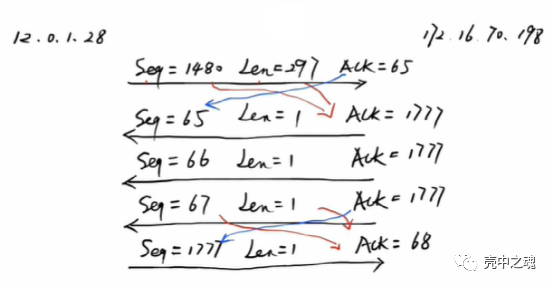 12.0.1.28 172.16.70.198
Seq=1480 Len=297 Ack=65
Seq=65 Len=1 Ack=1777
Seq=66 Len=1 Ack=1777
Seq=67 Len=1 Ack=1777
Seq=1777 Len=1 Ack=68
壳中之魂